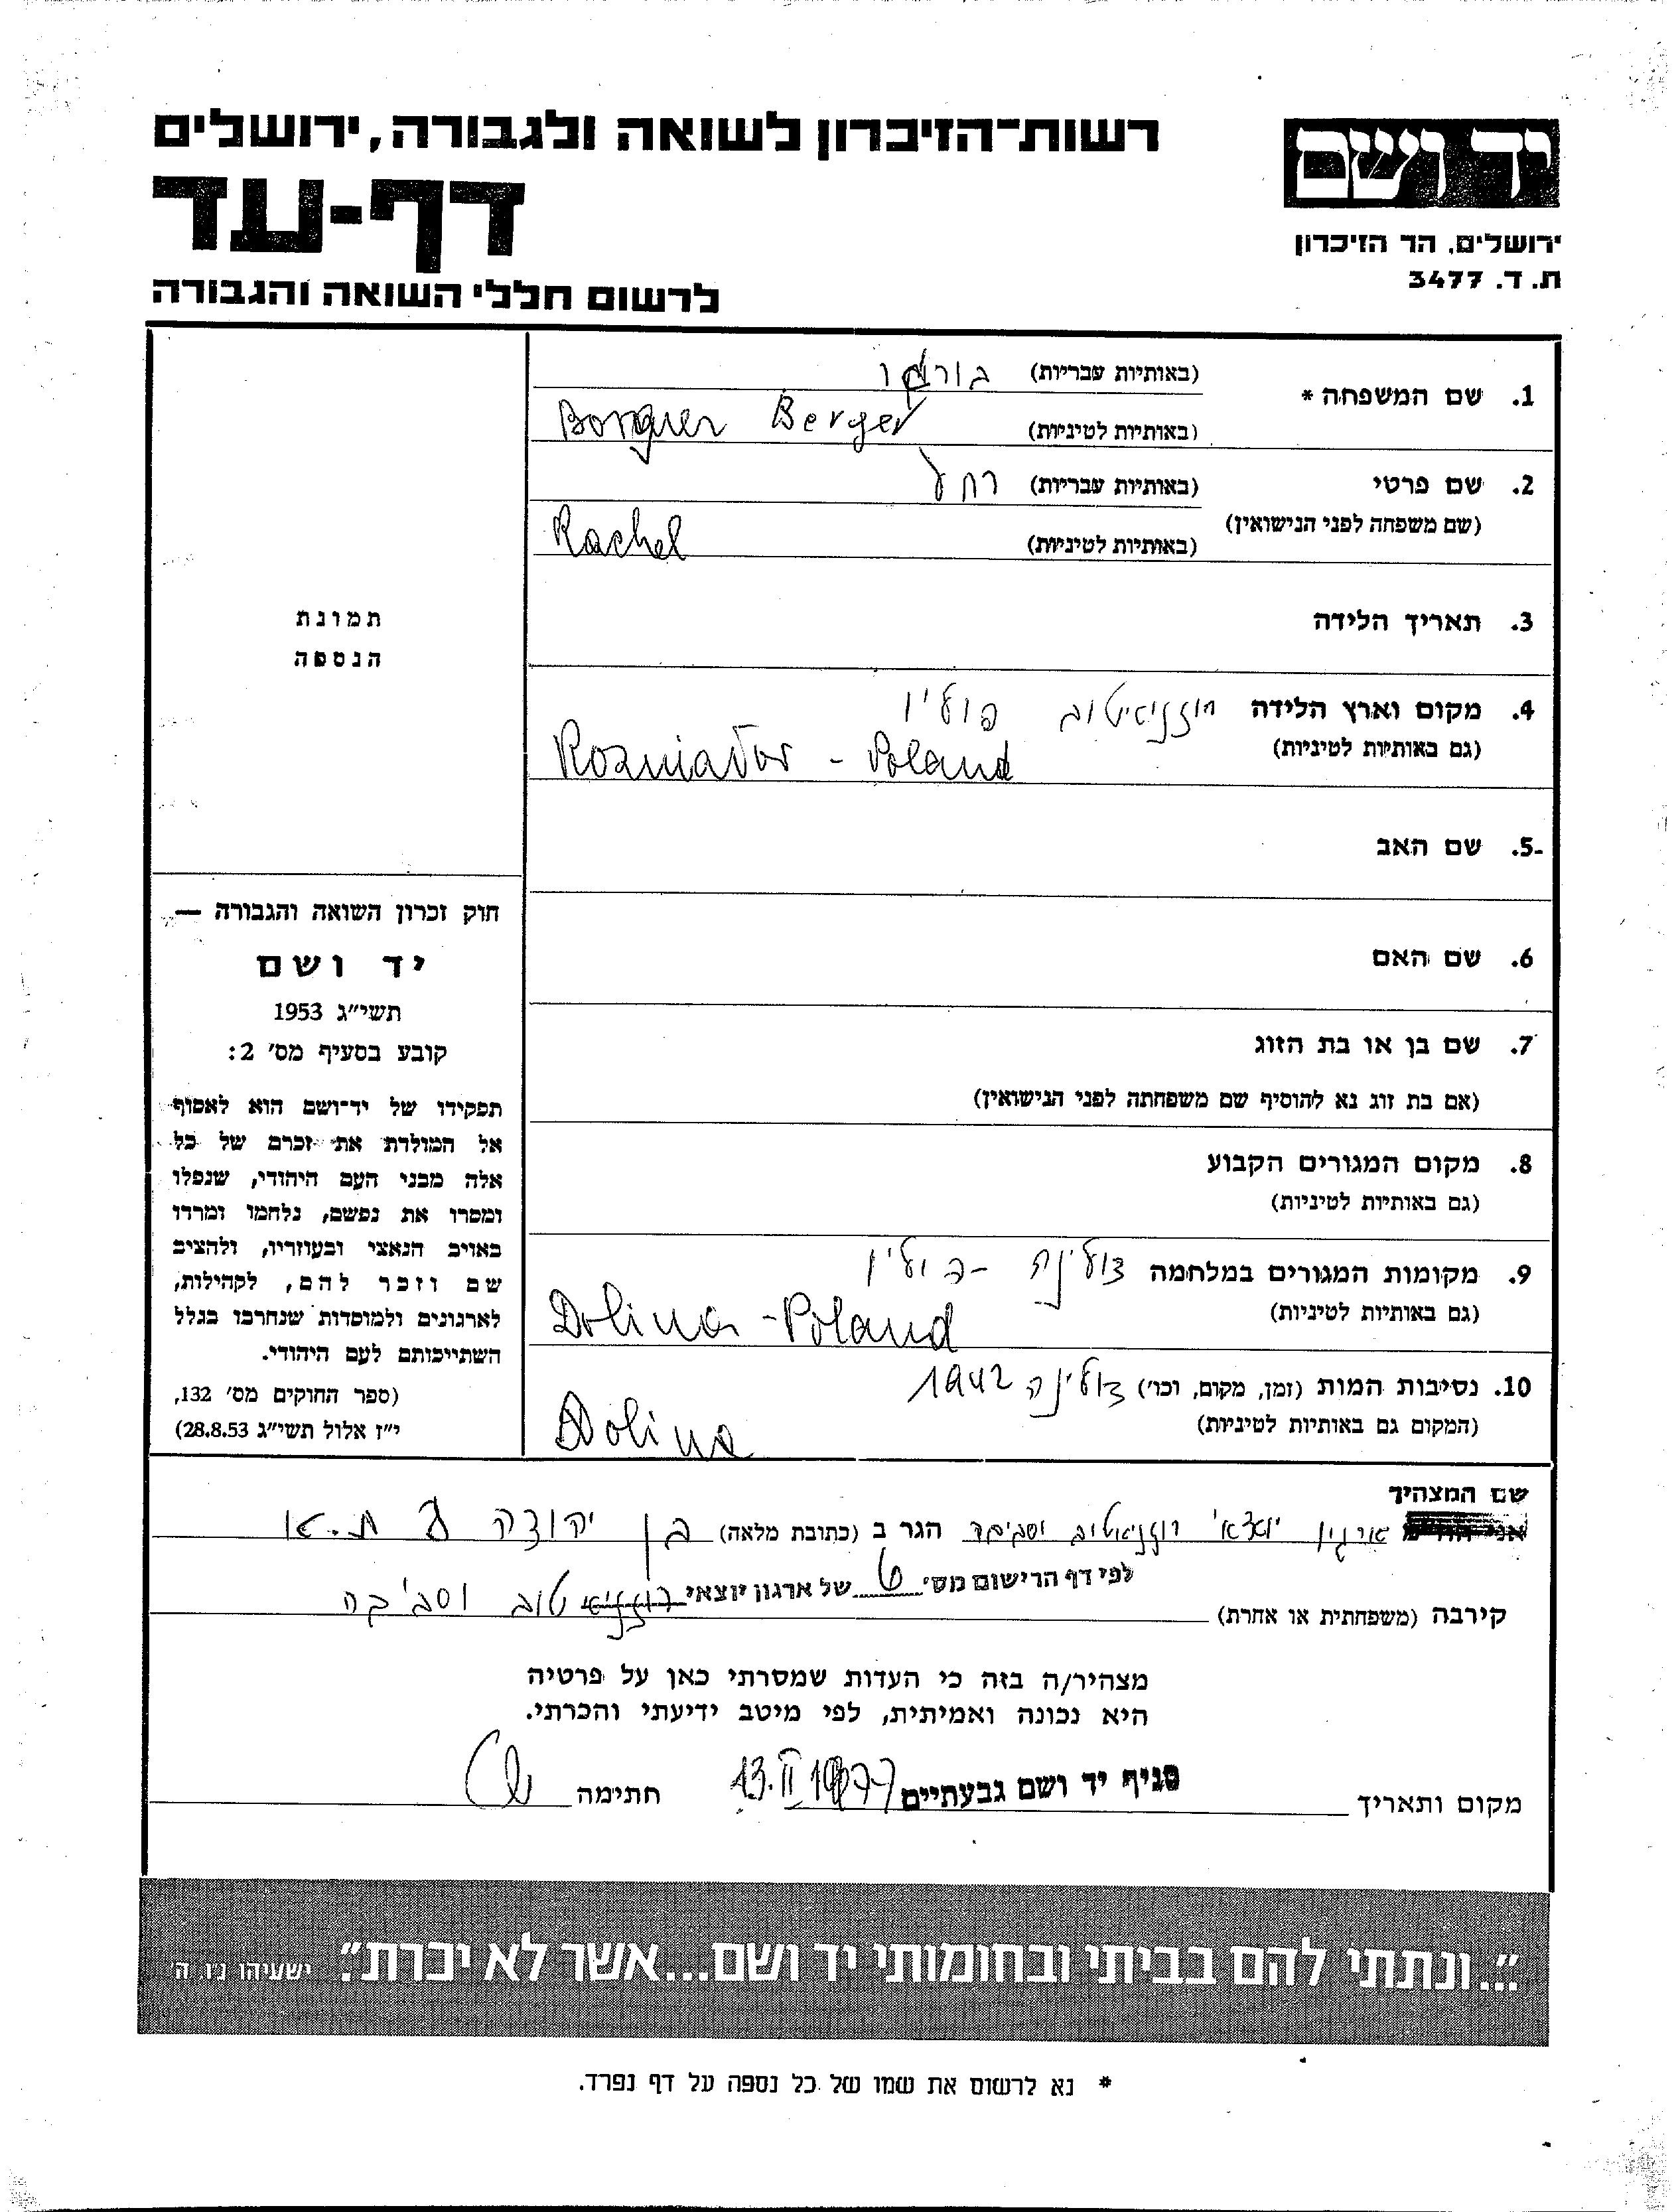 רשות־הזיכרון לשואה ולגבורה, ירושלים
דף-עד
לרשום חללי השואה והגבורה
יד ושם
ירושלים, הר הזיכרון
ת. ד. 3477
1. שם המשפחה *
(באותיות עבריות)
(באותיות לטיניות) Borguer Berger
2. שם פרטי (באותיות עבריות) רחל
(שם משפחה לפני הנישואין)
(באותיות לטיניות) Rachel
3. תאריך הלידה
4. מקום וארץ הלידה רוזניאטוב פולין
(גם באותיות לטיניות) Rozniator - Poland
5. שם האב
6. שם האם
7. שם בן או בת הזוג
(אם בת זוג נא להוסיף שם משפחתה לפני הנישואין)
8. מקום המגורים הקבוע
(גם באותיות לטיניות)
9. מקומות המגורים במלחמה דולינה - פולין
(גם באותיות לטיניות) Dolina - Poland
10. נסיבות המות (זמן, מקום, וכו') דולינה 1942
(המקום גם באותיות לטיניות) Dolina
תמונת
הנספה
חוק זכרון השואה והגבורה —
יד ושם
תשי״ג 1953
קובע בסעיף מס׳ 2:
תפקידו של יד־ושם הוא לאסוף
אל המולדת את זכרם של כל
אלה מבני העם היהודי, שנפלו
ומסרו את נפשם, נלחמו ומרדו
באויב הנאצי ובעוזריו, ולהציב
שם וזכר להם, לקהילות,
לארגונים ולמוסדות שנחרבו בגלל
השתייכותם לעם היהודי.
(ספר החוקים מס׳ 132,
י״ז אלול תשי״ג 28.8.53)
שם המצהיר
ארגון יוצאי רוזניאטוב וסביבה הגר ב (כתובת מלאה) בן יהודה ת.א
לפי דף הרישום מס׳ של ארגון יוצאי רוזניאטוב וסביבה
קירבה (משפחתית או אחרת)
מצהיר/ה בזה כי העדות שמסרתי כאן על פרטיה
היא נכונה ואמיתית, לפי מיטב ידיעתי והכרתי.
מקום ותאריך סניף יד ושם גבעתיים 13.II 1977 חתימה
״...ונתתי להם בביתי ובחומותי יד ושם...אשר לא יכרת״. ישעיהו נ״ו, ה׳
* נא לרשום את שמו של כל נספה על דף נפרד.